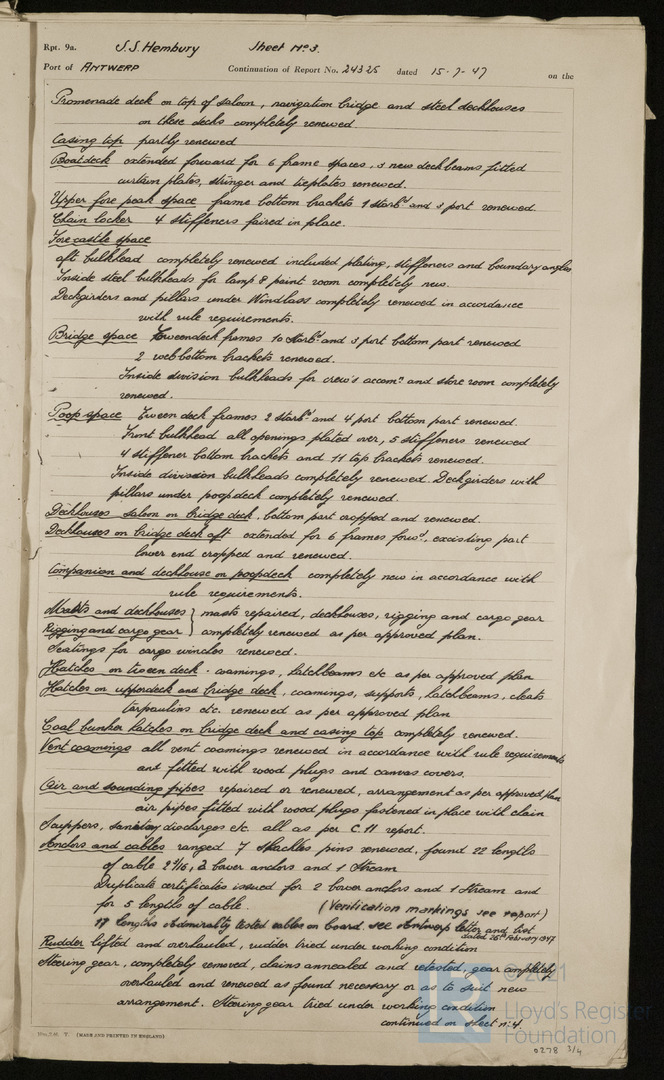 Rpt. 9a. S.S. Hembury Sheet No 3.
Port of ANTWERP Continuation of Report No. 24325 dated 15-7-47 on the
Promenade deck on top of saloon, navigation bridge and steel deckhouses
on these decks completely renewed
Casing top partly renewed
Boatdeck extended forward for 6 frame spaces, 3 new deckbeams fitted
curtain plates, stringer and tieplates renewed.
Upper fore peak space frame bottom brackets 1 starbd and 3 port renewed.
Chain locker 4 stiffeners faired in place.
Forecastle space
aft bulkhead completely renewed included plating, stiffeners and boundary angles
Inside steel bulkheads for lamp & paint room completely new.
Deckgirders and pillars under Windlass completely renewed in accordance
with rule requirements.
Bridge space Tweendeck frames 10 starbd and 3 port bottom part renewed
2 web bottom brackets renewed.
Inside division bulkheads for crew's accomn and store room completely
renewed.
Poop space Tween deck frames 2 starbd and 4 port bottom part renewed.
Front bulkhead all openings plated over, 5 stiffeners renewed
4 stiffener bottom brackets and 11 top brackets renewed.
Inside division bulkheads completely renewed. Deckgirders with
pillars under poopdeck completely renewed.
Deckhouses saloon on bridge deck, bottom part cropped and renewed.
Deckhouses on bridge deck aft extended for 6 frames forwd, excisting part
lower end cropped and renewed.
Companion and deckhouse on poopdeck completely new in accordance with
rule requirements.
Masts and deckhouses } masts repaired, deckhouses, rigging and cargo gear
Rigging and cargo gear } completely renewed as per approved plan.
Seatings for cargo winches renewed.
Hatches on tween deck. coamings, hatchbeams etc as per approved plan
Hatches on upperdeck and bridge deck, coamings, supports, hatchbeams, cleats
tarpaulins etc. renewed as per approved plan
Coal bunker hatches on bridge deck and casing top completely renewed.
Vent coamings all vent coamings renewed in accordance with rule requirements
ant fitted with wood plugs and canvas covers.
Air and sounding pipes repaired or renewed, arrangement as per approved plan
air pipes fitted with wood plugs fastened in place with chain
Scuppers, sanitay discharges etc. all as per C.11 report.
Anchors and cables ranged 7 shackles pins renewed, found 22 lengths
of cable 2 1/16, 2 bower anchors and 1 Stream
Duplicate certificates issued for 2 bower anchors and 1 Stream and
for 5 lengths of cable. (Verification markings see report)
17 lengths Admiralty tested cables on board, see Antwerp letter and list
dated 26th February 1947
Rudder lifted and overhauled, rudder tried under working condition
Steering gear, completely removed, chains annealed and retested, gear completely
overhauled and renewed as found necessary or as to suit new
arrangement. Steering gear tried under working condition
continued on sheet n: 4.
(MADE AND PRINTED IN ENGLAND)
© 2021
Lloyd's Register
Foundation
0278 3/4